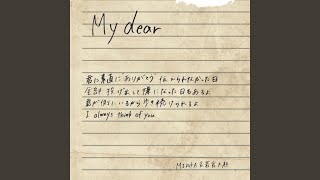 My dear
君に素直にありがとう 伝えられなかった日
全部 投げ出して嫌になった日もあるよ
君が傍にいるから歩き続けられるよ
I always think of you